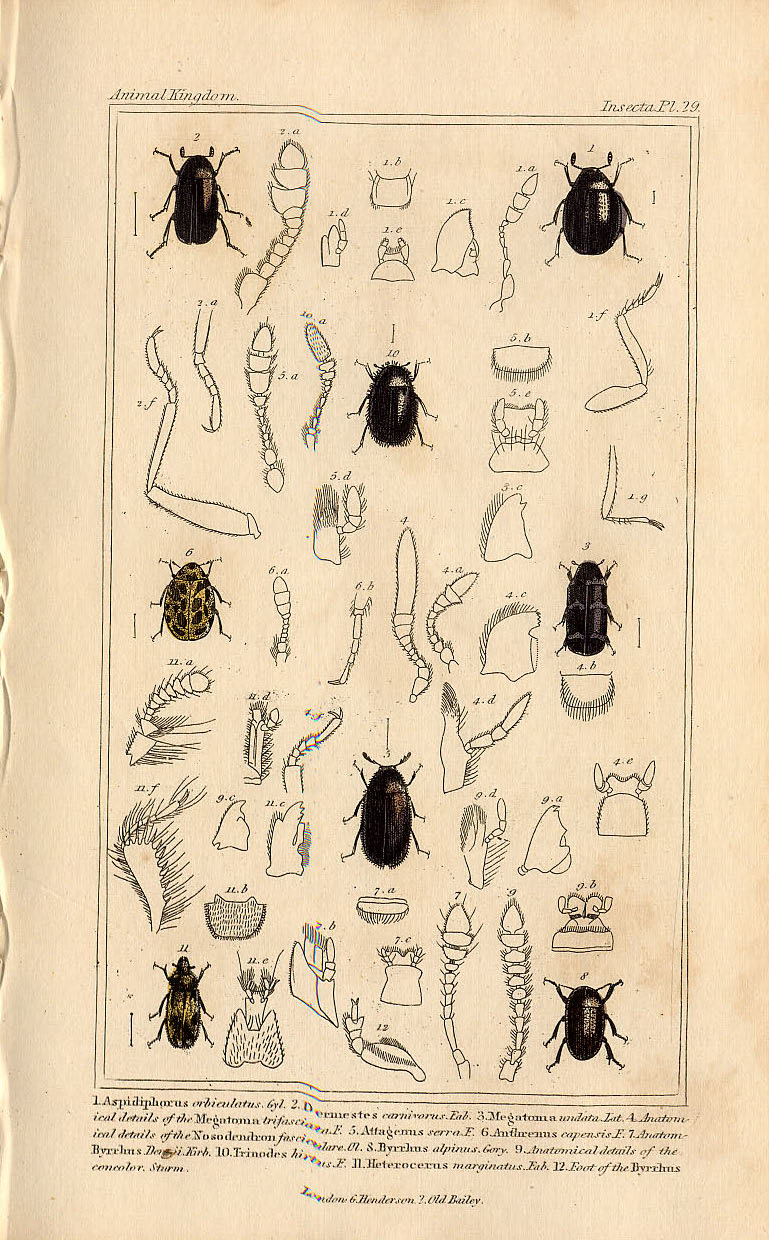 Animal Kingdom.
Insecta. Pl. 29.
2
2.a
1.b
1.a
1
1.d
1.e
1.c
2.a
10.a
10
5.b
1.f
5.a
2.f
5.e
5.d
5.c
1.g
4.
6
6.a
6.b
4.a
4.c
3
11.a
4.b
11.d
4.d
5
4.e
11.f
9.c
11.c
9.d
9.a
11.b
7.a
7
9
9.b
7.b
7.c
11
11.e
12
8
1. Aspidiphorus orbiculatus. Gyl. 2. Dermestes carnivorus. Fab. 3. Megatoma undata. Lat. 4. Anatom-
ical details of the Megatoma trifascia.a. F. 5. Attagenus serra. F. 6. Anthrenus capensis. F. 7. Anatom-
ical details of the Nosodendron fasciculare. Ol. 8. Byrrhus alpinus. Gory. 9. Anatomical details of the
Byrrhus Kirb. 10. Trinodes hirtus. F. 11. Heterocerus marginatus. Fab. 12. Foot of the Byrrhus
concolor. Sturm.
London G. Henderson 2. Old Bailey.